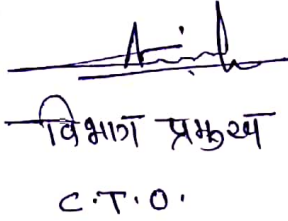 विभाग प्रमुख
C.T.O.